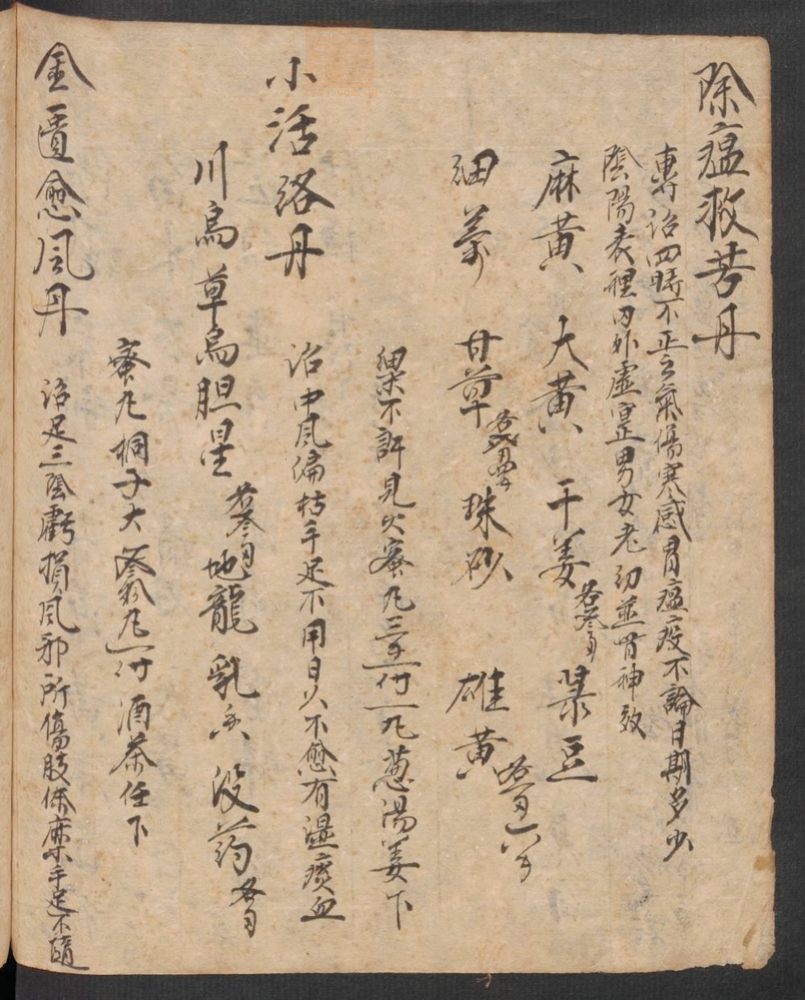 除瘟救苦丹
專治四時不正之氣傷寒感冒瘟疫不論日期多少
陰陽表裡内外虛寔男女老幼並皆神效
麻黄 大黄 干姜 各叁 菉豆
細 甘草 珠砂 雄黄
不許見火蜜丸三付一丸葱湯姜下
小活络丹 治中風偏枯手足不用日久不愈有濕痰血
川烏 草烏 胆星 各叁 地龍 乳香 没药
蜜丸桐子大 丸一付 酒茶任下
金匱愈風丹 治足三陰虧損風邪所傷肢体麻木手足不隨